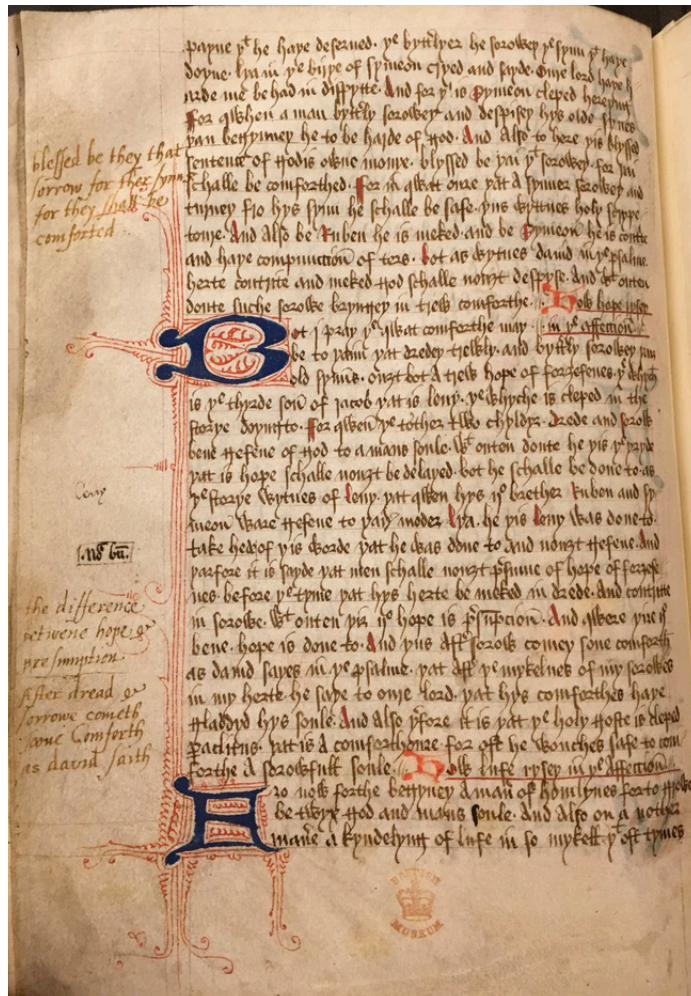 payne yt he haye deserued. ye byttlyer he sorowey ye synn yt haye
doyne. lya in ye byrye of symeon cryed and sayde. Oure lord haye h
arde me be had in dispytte. And for yis Symeon cleped hereyng
For qwhen a man byttly sorowey and despisey hys olde synes
yan begynney he to be harde of god. And also to here yis blyssed
sentenc of godis owne mouy. blyssed be yai yt sorowey. for yai
schalle be comforthed. For in qwat oure yat a synner sorowey and
turney fro hys synn he schalle be safe. yus wyttnes holy scryp
toure. And also be Ruben he is meked. and be Symeon he is contte
and haye compunccion of ters. bot as wytnes dauid in ye psalme.
herte contrite and meked god schalle nouzt despyse. And wt outen
doute suche sorowe bryngey in trew comforthe. How hope ryser
Bot i pray ye. qwat comforthe may in ye affection.
be to yaim yat dredey trewly. and byttly sorowey yair
old synns. ouzt bot a trew hope of forzefenes. ye whych
is ye thyrde son of jacob yat is leuy. ye whyche is cleped in the
storye doyng to. For qwen ye tother two chyldyr. drede and sorow
bene gefene of god to a mans soule. wt outen doute he yis ye yryde
yat is hope schalle nouzt be delayed. bot he schalle be done to. as
ye storye wytnes of leuy. yat qwen hys ij brether Ruben and sy
meon ware gefene to yair moder lya. he yis leuy was done to.
take hed of yis worde yat he was done to and nouzt gefene. And
yarfore it is sayde yat men schalle nouzt presume of hope of forzefe
nes. before ye tyme yat hys herte be meked in drede. and contrite
in sorowe. wt outen yir ij hope is presumpcion. And qwere yire ij
bene. hope is done to. And yus aftr sorow comey sone comforth
as dauid sayes in ye psalme. yat aftr ye mykelnes of my sorowes
in my herte. he saye to oure lord. yat hys comforthes haye
gladdyd hys soule. And also yrfore it is yat ye holy goste is cleped
paclitus. yat is a comforthoure for oft he wouches safe to com
forthe A sorowfull soule. How lufe rysey in ye Affection
Fro now forthe begyney a man of homlynes for to growe
be twyx god and mans soule. And also on a nother
manere a kyndelyng of lufe in so mykell yt oft tymes
blessed be they that
sorrow for ther synn
for they shall be
comforted
leuy
No bn.
the difference
betwene hope &
presumption
After dread &
sorrowe cometh
sone Comforth
as david saith
BRITISH
MUSEUM